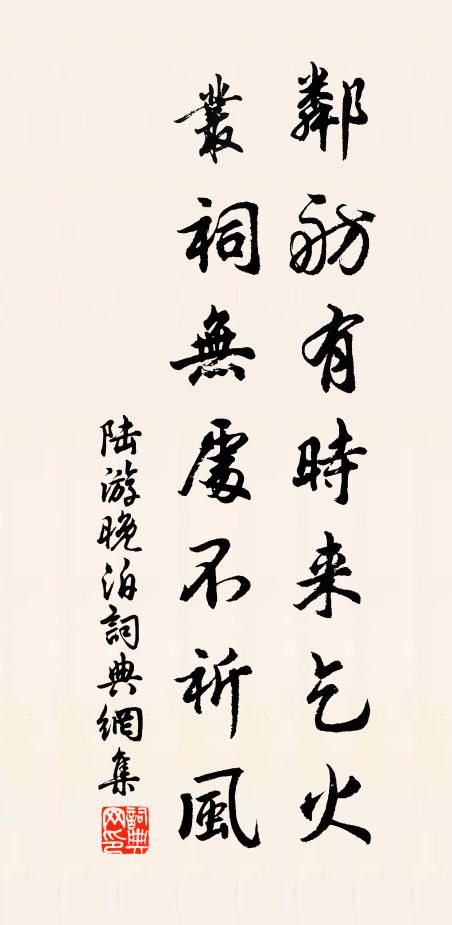 鄰舫有時来乞火
叢祠無處不祈風
陸游晚泊詞典網集
詞典網印